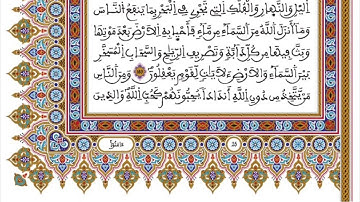 الَّيْلِ وَالنَّهَارِ وَالْفُلْكِ الَّتِي تَجْرِي فِي الْبَحْرِ بِمَا يَنْفَعُ النَّاسَ
وَمَا أَنْزَلَ اللَّهُ مِنَ السَّمَاءِ مِنْ مَاءٍ فَأَحْيَا بِهِ الْأَرْضَ بَعْدَ مَوْتِهَا
وَبَثَّ فِيهَا مِنْ كُلِّ دَابَّةٍ وَتَصْرِيفِ الرِّيَاحِ وَالسَّحَابِ الْمُسَخَّرِ
بَيْنَ السَّمَاءِ وَالْأَرْضِ لَآيَاتٍ لِقَوْمٍ يَعْقِلُونَ وَمِنَ النَّاسِ
مَنْ يَتَّخِذُ مِنْ دُونِ اللَّهِ أَنْدَادًا يُحِبُّونَهُمْ كَحُبِّ اللَّهِ وَالَّذِينَ